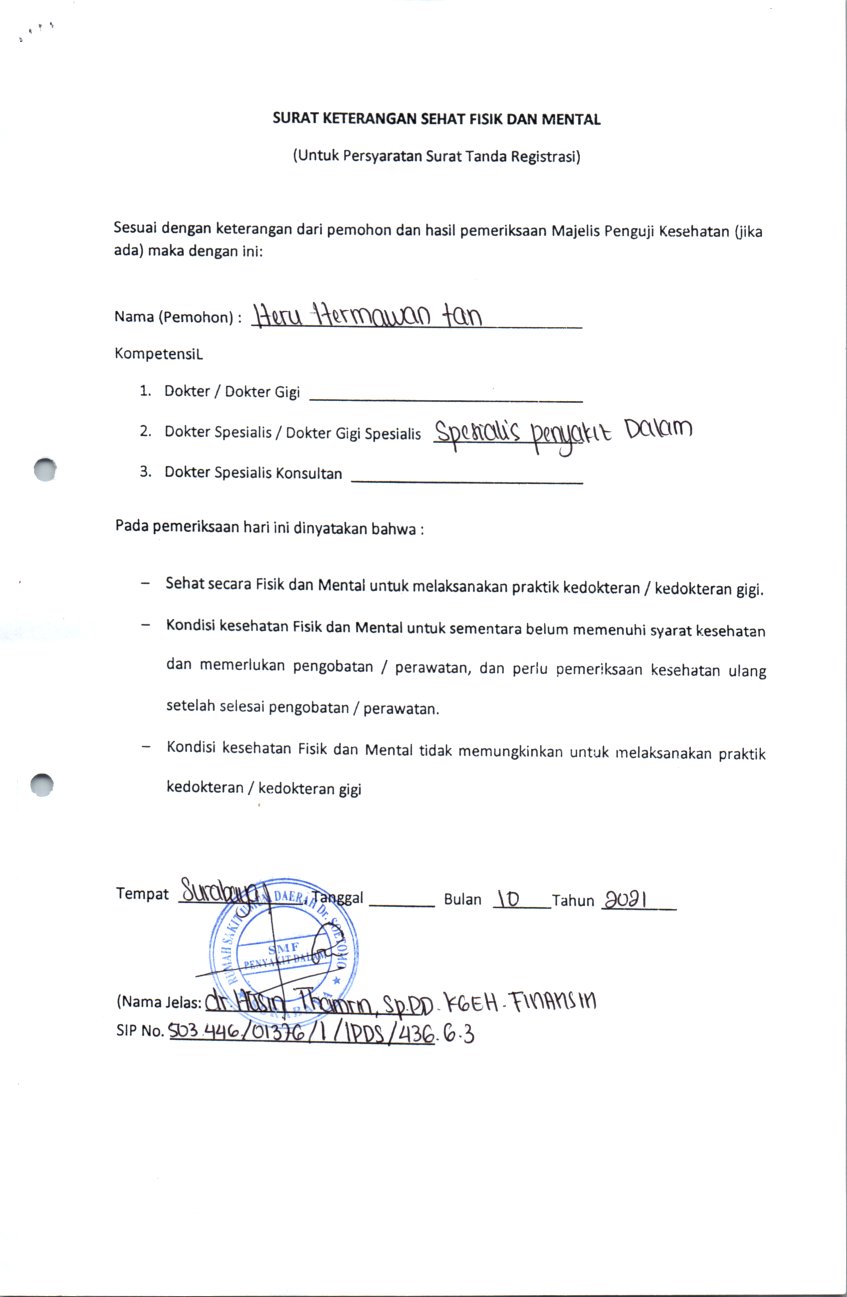 SURAT KETERANGAN SEHAT FISIK DAN MENTAL
(Untuk Persyaratan Surat Tanda Registrasi)
Sesuai dengan keterangan dari pemohon dan hasil pemeriksaan Majelis Penguji Kesehatan (jika
ada) maka dengan ini:
Nama (Pemohon) : Heru Hermawan tan
KompetensiL
1. Dokter / Dokter Gigi
2. Dokter Spesialis / Dokter Gigi Spesialis Spesialis penyakit Dalam
3. Dokter Spesialis Konsultan
Pada pemeriksaan hari ini dinyatakan bahwa :
– Sehat secara Fisik dan Mental untuk melaksanakan praktik kedokteran / kedokteran gigi.
– Kondisi kesehatan Fisik dan Mental untuk sementara belum memenuhi syarat kesehatan
dan memerlukan pengobatan / perawatan, dan perlu pemeriksaan kesehatan ulang
setelah selesai pengobatan / perawatan.
– Kondisi kesehatan Fisik dan Mental tidak memungkinkan untuk melaksanakan praktik
kedokteran / kedokteran gigi
Tempat Surabaya, Tanggal Bulan 10 Tahun 2021
RUMAH SAKIT UMUM DAERAH Dr. SOETOMO
SMF
PENYAKIT DALAM
(Nama Jelas: dr. Husin Thamrin, Sp.PD. KGEH. FINASIM
SIP No. 503.446/01376/1/IPDS/436.6.3